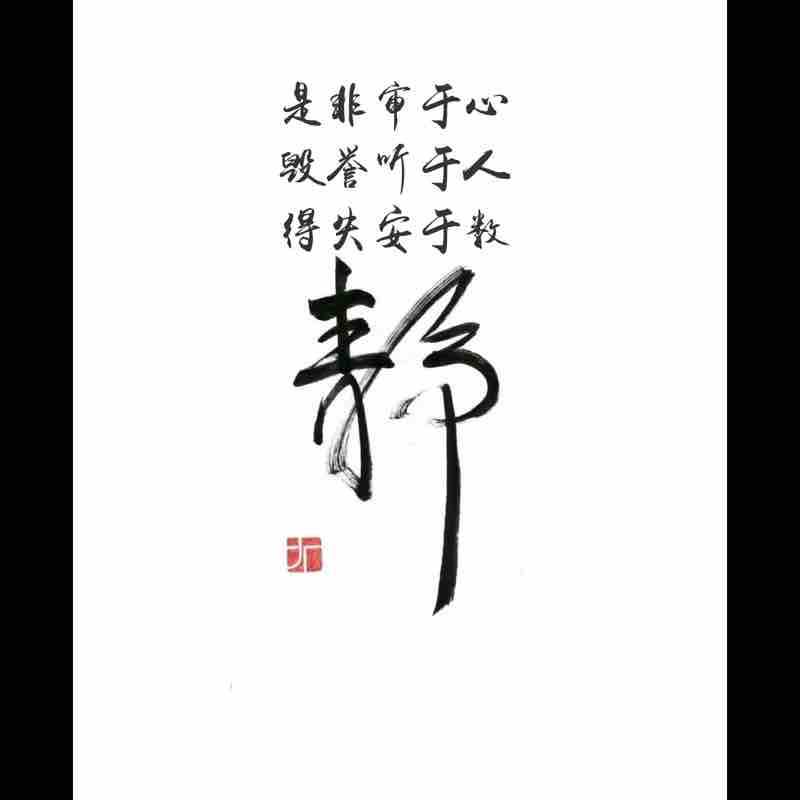 是非审于心
毁誉听于人
得失安于数
静